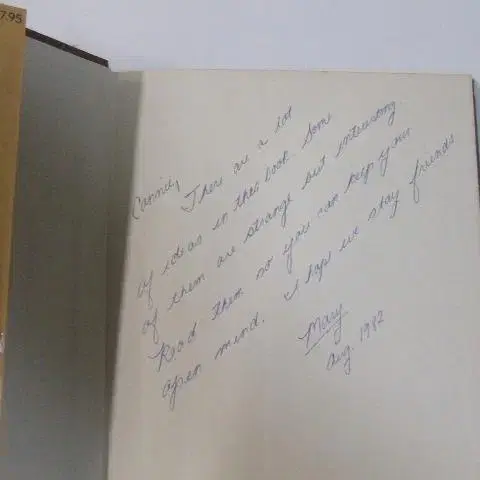 7.95
Connie,
There are a lot
of ideas in this book. Some
of them are strange but interesting
Read them so you can keep your
open mind. I hope we stay friends
Mary
Aug. 1982